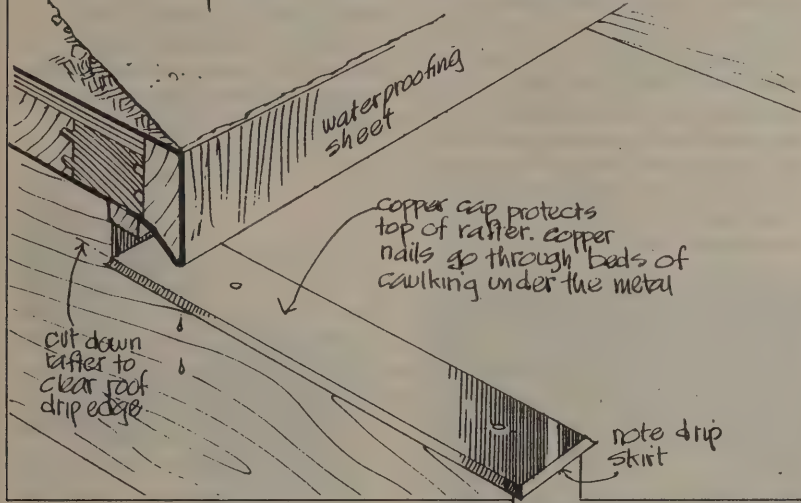 waterproofing
sheet
copper cap protects
top of rafter. copper
nails go through beds of
caulking under the metal
cut down
rafter to
clear roof
drip edge
note drip
skirt